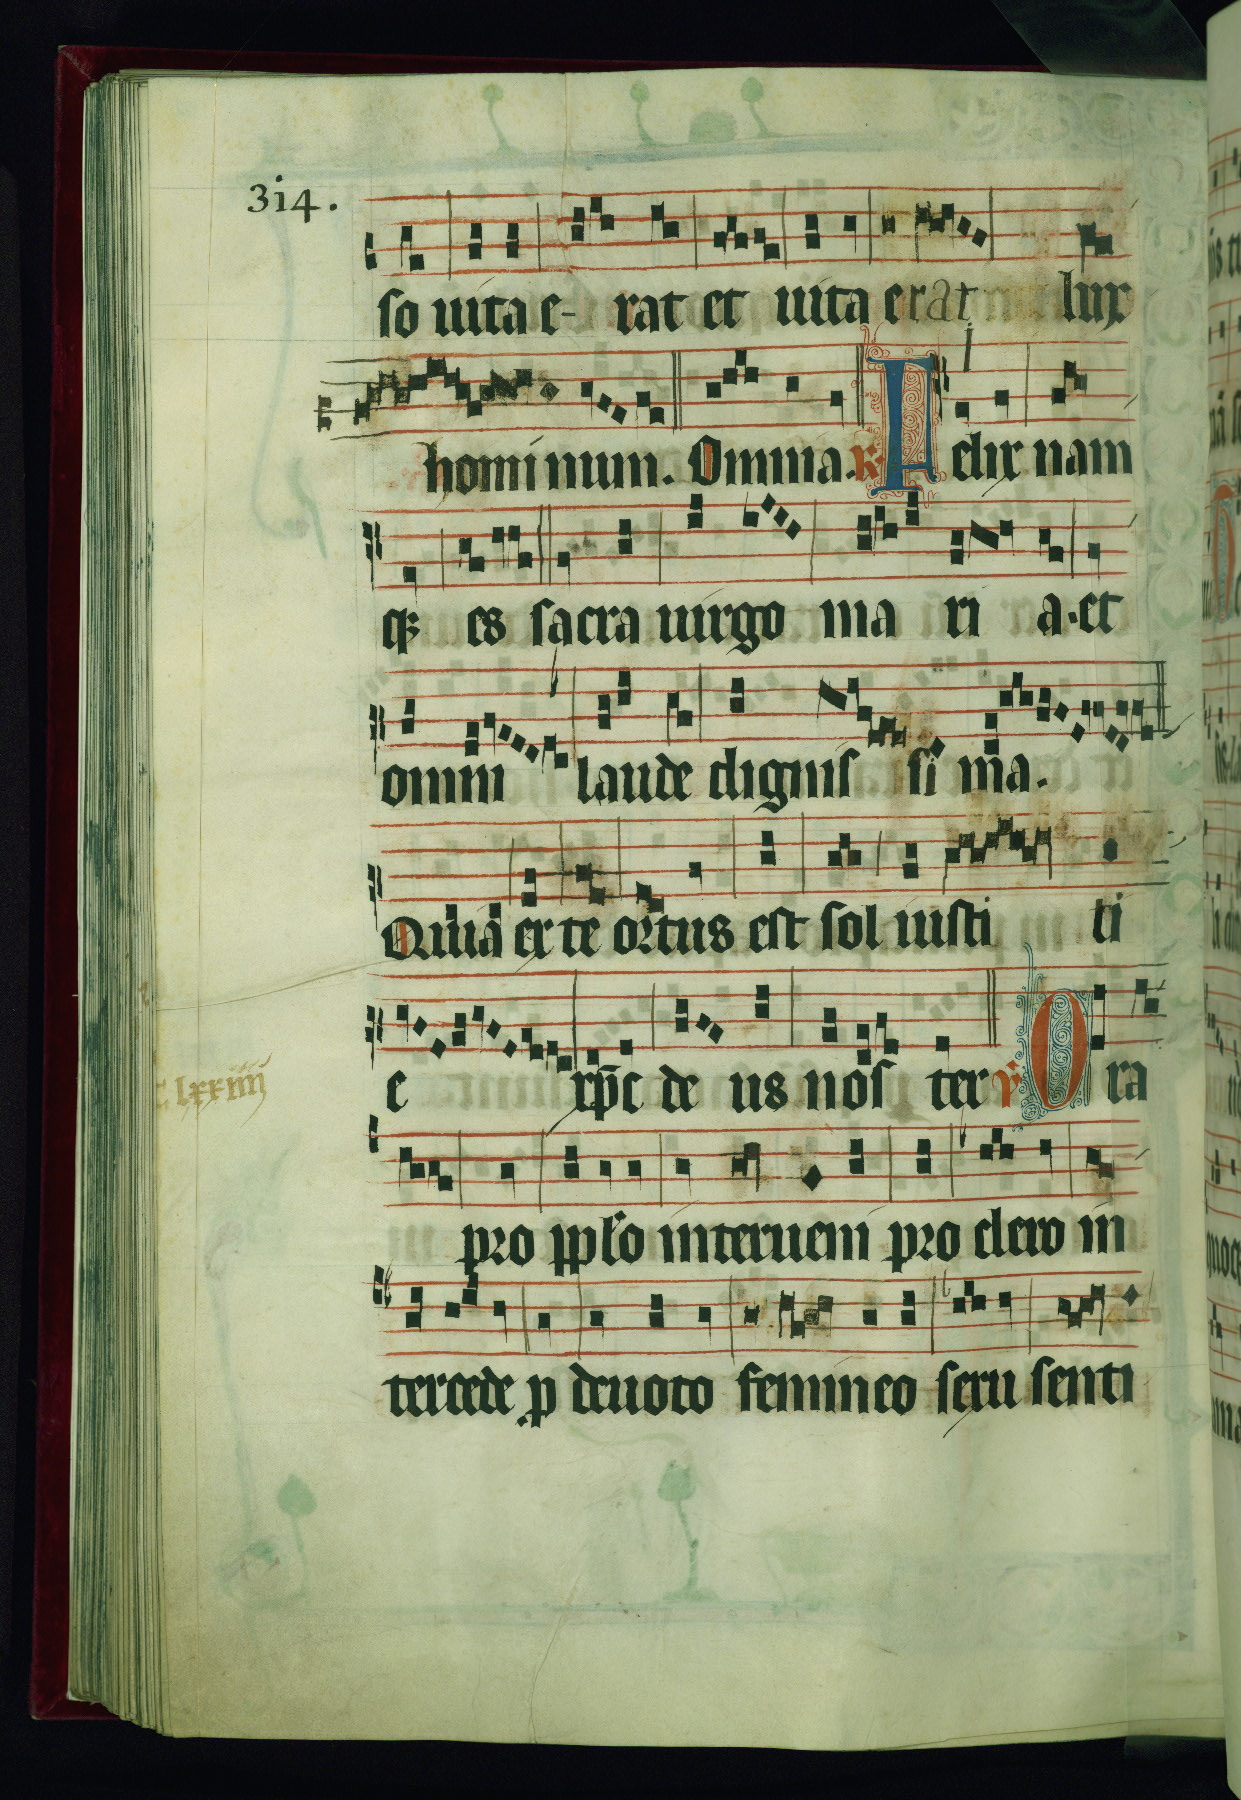 314.
so uita e- rat et uita erat lux
homi num. Omnia. R Felix nam
qꝫ es sacra uirgo ma ri a. et
omni laude dignis si ma.
Quia ex te ortus est sol iusti ti
e xp̄c de us nos ter v̄ O ra
pro pp̄lo interueni pro clero in
tercede p deuoto femineo sexu senti
C lxxiiii